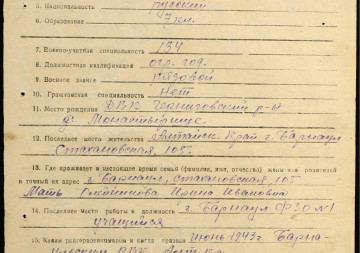 5. Национальность русский
6. Образование 7 кл.
7. Военно-учетная специальность 134
8. Должностная квалификация огр. год.
9. Военное звание рядовой
10. Гражданская специальность Нет
11. Место рождения ДВК Черниговский р-н
д. Монастырище
12. Последнее место жительства Алтайск. край г. Барнаул
Стахановская 105.
13. Где проживает в настоящее время семья (фамилия, имя, отчество) жены или родителей
и точный их адрес г. Барнаул, Стахановская 105
Мать Ирина Ивановна
14. Последнее место работы и должность г. Барнаул ФЗО №1
учащийся
15. Каким райгорвоенкоматом и когда призван июнь 1943 г. Барна-
ульским РВК